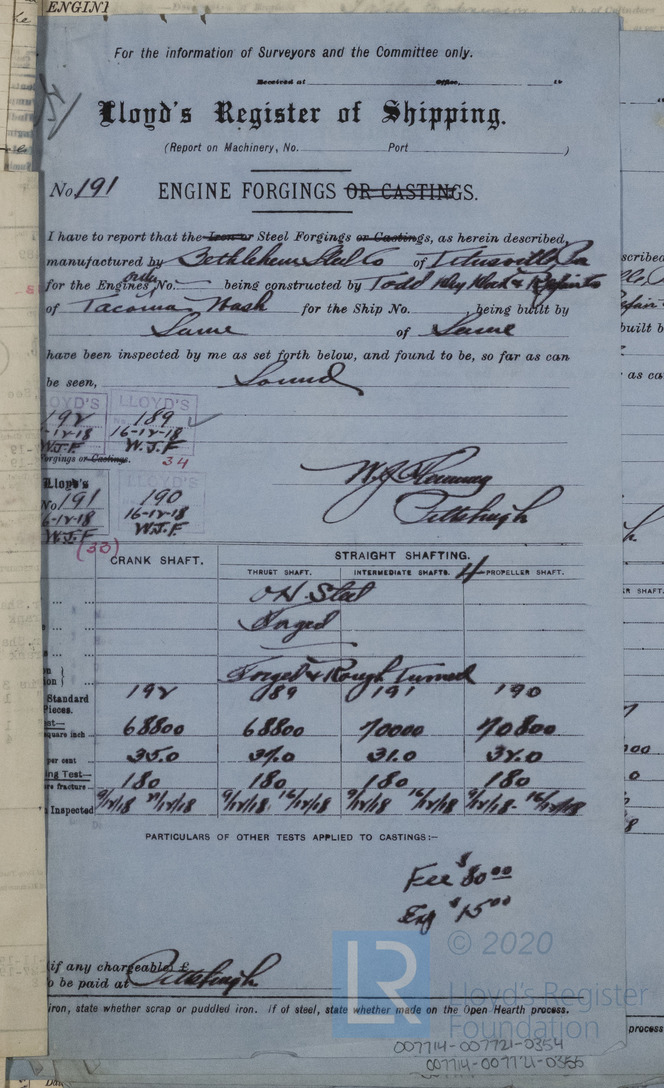 ENGINE
For the information of Surveyors and the Committee only.
Received at Office, 19
Lloyd's Register of Shipping.
(Report on Machinery, No. Port )
No. 191 ENGINE FORGINGS OR CASTINGS.
I have to report that the Iron or Steel Forgings or Castings, as herein described,
manufactured by Bethlehem Steel Co of Titusville Pa
only
for the Engines No. being constructed by Todd Dry Dock & Repairs
of Tacoma Wash for the Ship No. being built by
Same of Same
have been inspected by me as set forth below, and found to be, so far as can
be seen, Sound
LLOYD'S LLOYD'S
192 189
16-12-18
W.J.F. W.J.F
Forgings or Castings. 34
Lloyd's LLOYD'S
No 191 190
6-12-18 16-12-18
W.J.F W.J.F
(33)
Pittsburgh
CRANK SHAFT. STRAIGHT SHAFTING.
THRUST SHAFT. INTERMEDIATE SHAFTS. 4 PROPELLER SHAFT.
OH Steel
Forged
Forged & Rough Turned
Standard 192 189 191 190
Pieces.
square inch 68800 68800 70000 70800
per cent 35.0 37.0 31.0 32.0
ing Test—
fracture 180 180 180 180
Inspected 9/12/18 9/12/18 16/12/18 9/12/18 16/12/18 9/12/18 16/12/18
PARTICULARS OF OTHER TESTS APPLIED TO CASTINGS:—
Fee $80.00
Exp $15.00
(if any chargeable) £
o be paid at Pittsburgh
iron, state whether scrap or puddled iron. If of steel, state whether made on the Open Hearth process.
LR © 2020
Lloyd's Register
Foundation
007714-007721-0354
007714-007721-0355
process